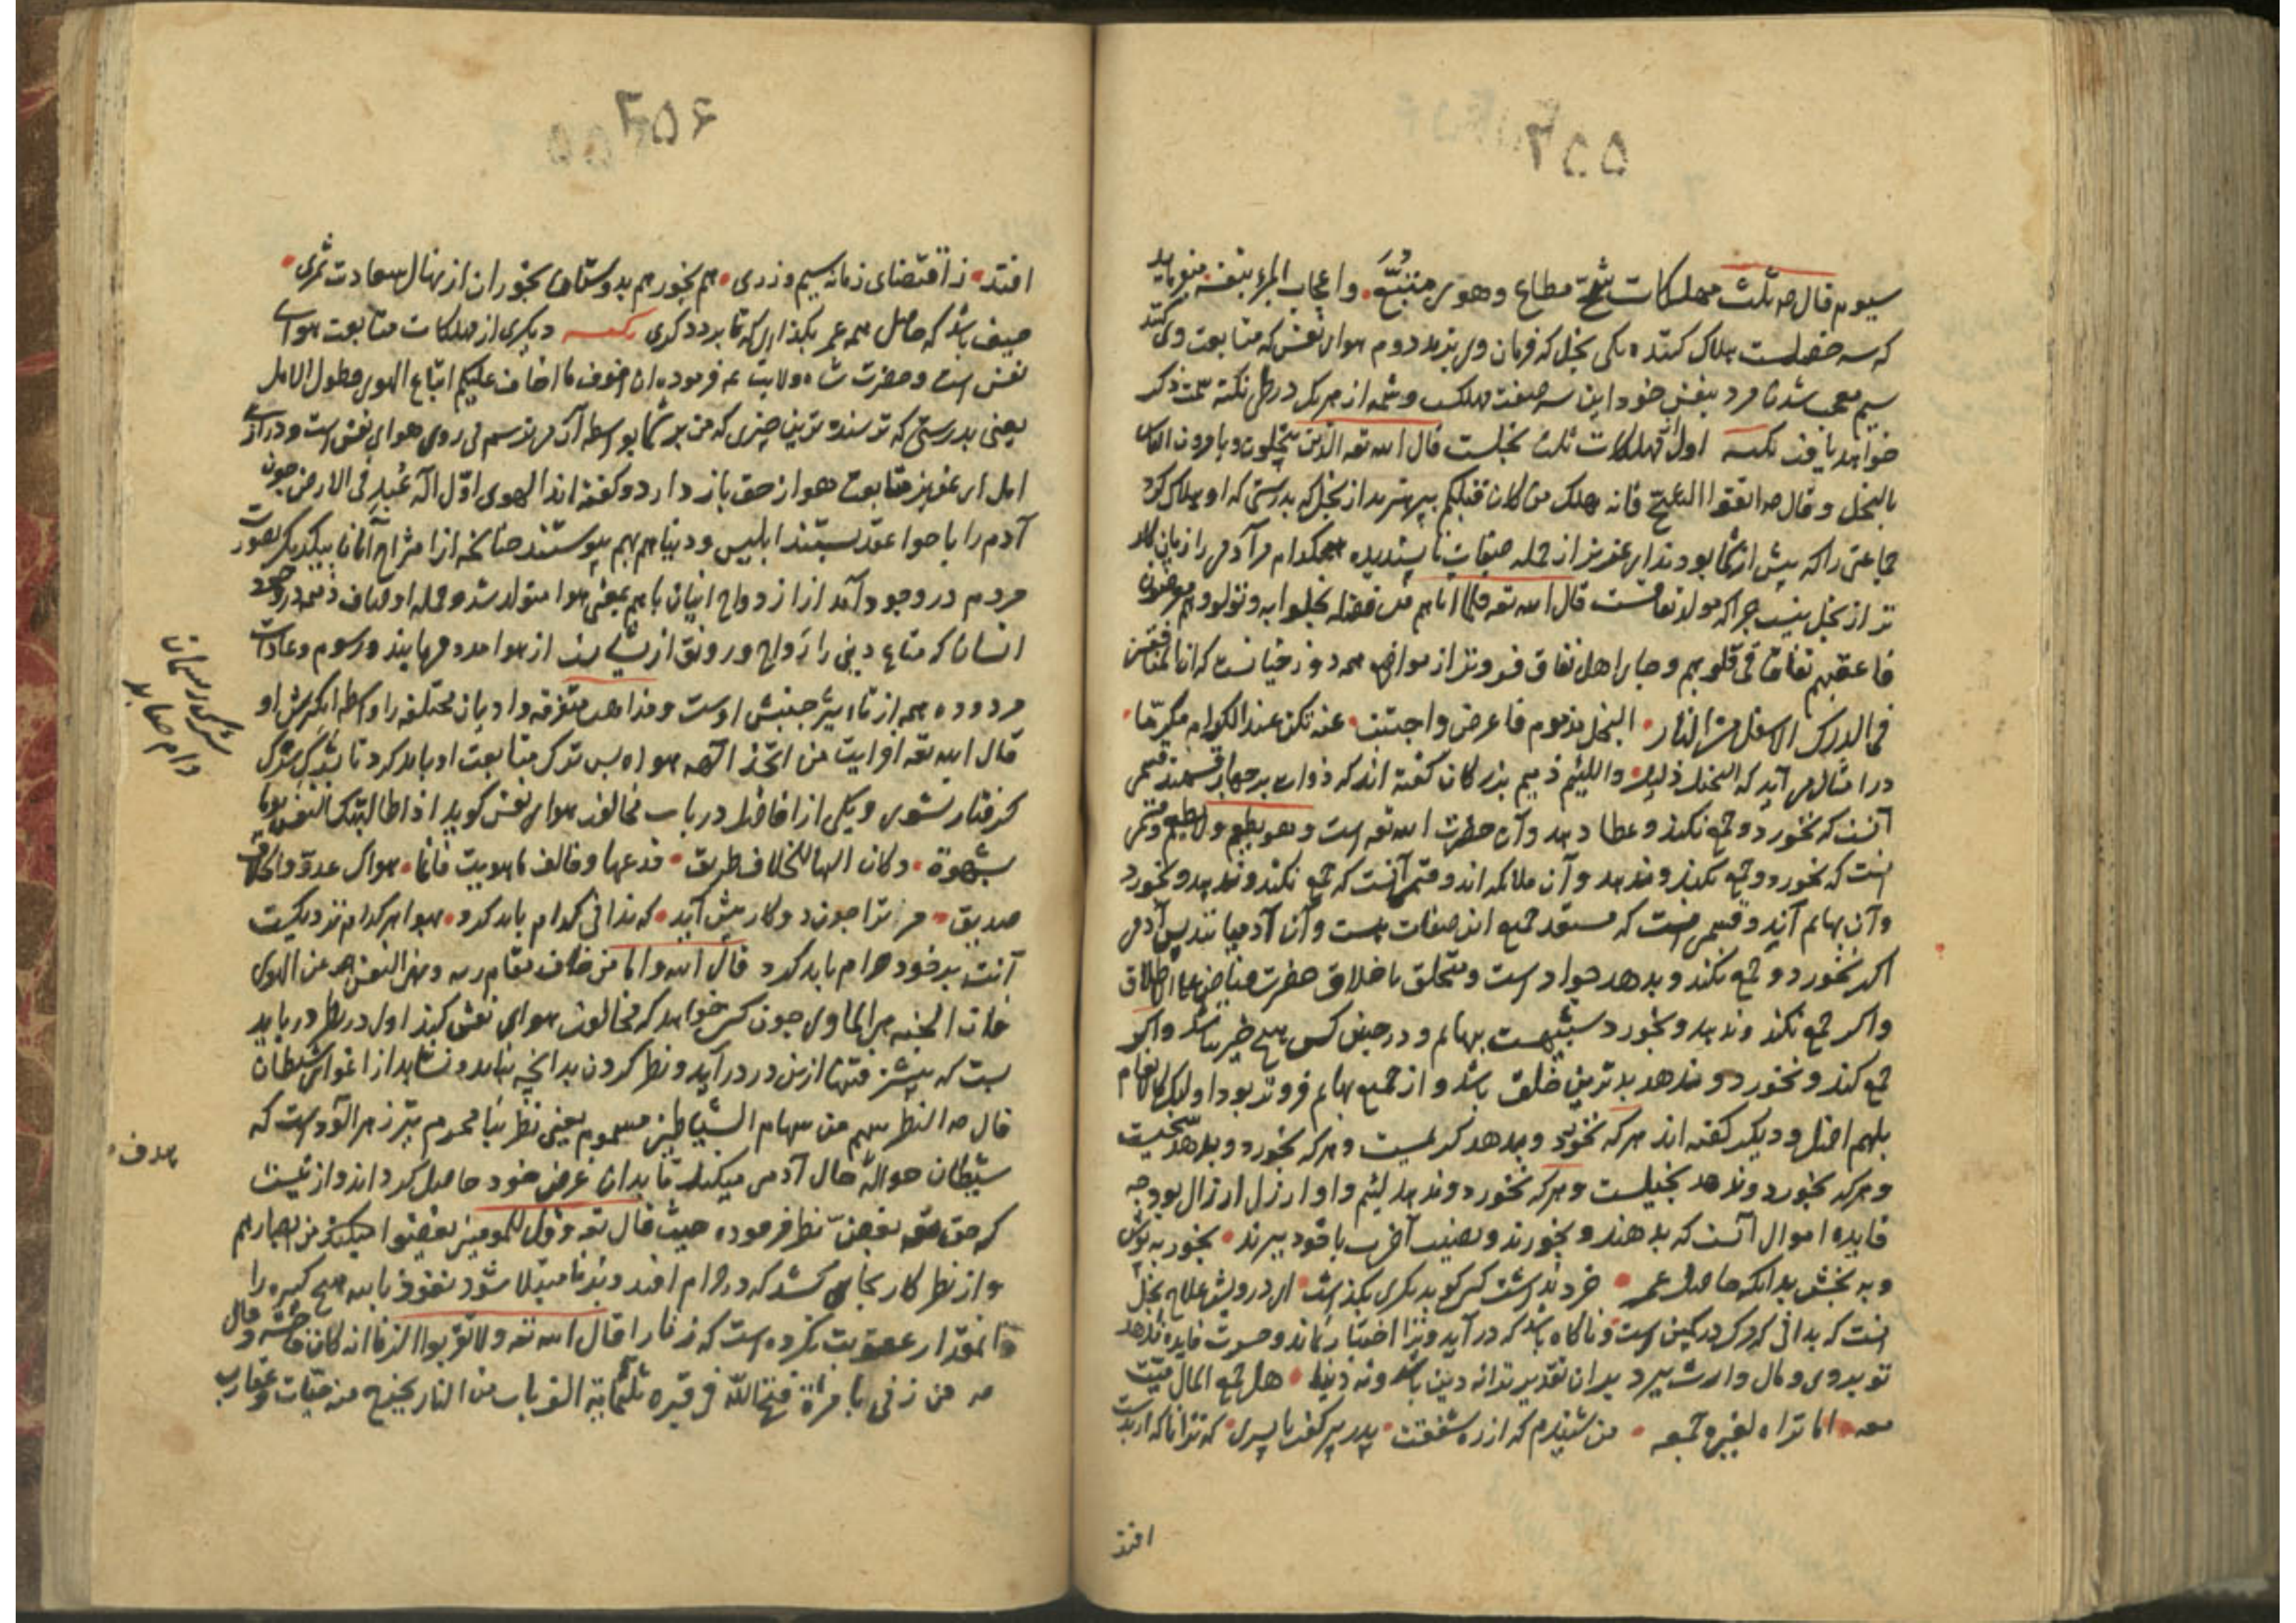 ۲۵۵
سیوم قال صه ثلث مهلکات شح مطاع و هوی متبع و اعجاب المرء بنفسه
که سه خصلت هلاک کننده یکی بخل که فرمان وی برند دوم هوای نفس که متابعت وی کنند
سیم معجب شدن مرد بنفس خود این سه صفت مهلکست و شمه از هریک در طی نکته سمت ذکر
خواهد یافت نکته اول از مهلکات ثلث بخلست قال الله تعه الذین یبخلون و یامرون الناس
بالبخل و قال صه اتقوا الشح فانه هلک من کان قبلکم بپرهیزید از بخل که بدرستی که او هلاک کرد
جماعتی را که پیش از شما بودند ای عزیز از جمله صفات ناپسندیده هیچکدام مر آدمی را زیان کار
تر از بخل نیست چرا که مولد نفاقست قال الله تعه فلما اتاهم من فضله بخلوا به و تولوا و هم معرضون
فاعقبهم نفاقا فی قلوبهم و جای اهل نفاق فروتر از مواضع همه دوزخیانست که ان المنافقین
فی الدرک الاسفل من النار البخل مذموم فاعرض واجتنب عنه تکن عند الکرام مکرما
در امثال می آید که البخیل ذلیل و اللئیم ذمیم بزرکان کفته اند که ذوات بر چهار قسمند قسمی
آنست که نخورد و جمع نکند و عطا دهد و آن حضرت الله تعه است و هو یطعم و لا یطعم و قسمی
انست که نخورد و جمع نکند و ندهد و آن ملائکه اند و قسمی آنست که جمع نکند و ندهد و بخورد
و آن بهایم اند و قسمی هست که مستعد جمیع این صفات هست و آن آدمیانند پس آدمی
اکر نخورد و جمع نکند و بدهد جواد است و متخلق باخلاق حضرت فیاض علی الاطلاق
و اکر جمع نکند و ندهد و بخورد شبیهست ببهایم و در چنین کس هیچ خیر نباشد و اکر
جمع کند و نخورد و ندهد بدترین خلق باشد و از جمیع بهایم فروتر بود اولئک کالانعام
بل هم اضل و دیکر کفته اند هرکه نخورد و بدهد کریمست و هرکه بخورد و بدهد سخیست
و هرکه بخورد و ندهد بخیلست و هرکه نخورد و ندهد لئیم و او ارزل ارزال بود چه
فایده اموال آنست که بدهند و بخورند و نصیب آخرت با خود ببرند بخور بپوش
و به بخش بدانکه حاصل عمر خرد نداشت کس کو بدیکری بکذاشت ای درویش علاج بخل
انست که بدانی که مرک در کمین است و ناکاه باشد که در آید و ترا اختیار نماند و حسرت فایده ندهد
تو بروی و مال وارث ببرد بدان تقدیر ترا نه دین باشد و نه دنیا هل جمع المال میت
معه اما تراه لغیره جمعه من شنیدم که از ره شفقت پدر پیر کفت با پسری که ترا تا که از بدست
افتد
۲۵۶
افتد ز اقتضای زمانه سیم و زری هم بخور هم بدوستان بخوران از نهال سعادت ثمری
حیف باشد که حاصل همه عمر بکذاری که تا برد دکری نکته دیکری از مهلکات متابعت هوای
نفس است و حضرت شاه ولایت عه فرموده ان اخوف ما اخاف علیکم اتباع الهوی و طول الامل
یعنی بدرستی که ترسنده ترین چیزی که من بر شما بواسطه آن می ترسم پی روی هوای نفس است و درازی
امل ای عزیز متابعت هوا از حق باز دارد و کفته اند الهوی اول اله عبد فی الارض چون
آدم را با حوا عقد بستند ابلیس و دنیا هم بهم پیوستند چنانچه از امتزاج آنان بیکدیکر بصورت
مردم در وجود آمد از ازدواج اینان با هم یعنی هوا متولد شد و جمله اوصاف ذمیمه در وجود
انسان که متاع دینی را رواج و رونق از ایشانست از هوا مدد می یابند و رسوم و عادات
مردوده همه از تاثیر جنبش اوست و مذاهب متفرقه و ادیان مختلفه را واسطه انکیزش او
قال الله تعه افرایت من اتخذ الهه هواه پس ترک متابعت او باید کرد تا بشرک
کرفتار نشوی و یکی از افاضل در باب مخالفت هوای نفس کوید اذا طالبتک النفس یوما
بشهوة و کان الیها للخلاف طریق فدعها و خالف ما هویت فانما هواک عدو و الخلاف
صدیق مر ترا چون دو کار پیش آید که ندانی کدام باید کرد هوا بهر کدام نزدیکست
آنت بر خود حرام باید کرد قال الله و اما من خاف مقام ربه و نهی النفس عن الهوی
فان الجنة هی الماوی چون کس خواهد که مخالفت هوای نفس کند اول در نظر در باید
بست که بیشتر فتنها ازین در در آید و نظر کردن بدانچه نباید و نشاید از اغوای شیطان
قال صه النظر سهم من سهام الشیاطین مسموم یعنی نظر بنامحرم تیر زهر آلود است که
شیطان حواله حال آدمی میکند تا بدان غرض خود حاصل کرداند و ازینست
که حق تعه بغض نظر فرموده حیث قال تعه و قل للمومنین یغضوا من ابصارهم
و از نظر کار بجای کشد که در حرام افتد و بزنا مبتلا شود نعوذ بالله هیچ کبیره را
مقدار عقوبت نکرده است که زنا را قال الله تعه و لا تقربوا الزنا انه کان فاحشة و قال
صه من زنی بامراة فتح الله فی قبره ثلثمایة الف باب من النار یخرج منه حیات و عقارب
هدف